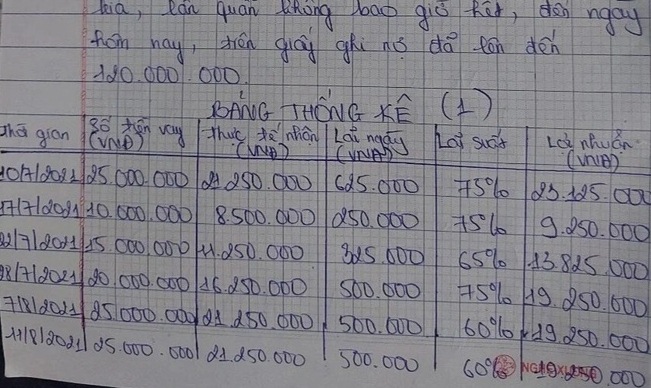 kia, lẩn quẩn không bao giờ hết, đến ngay
hôm nay, trên giấy ghi nợ đã lên đến
120.000.000.
BẢNG THỐNG KÊ (1)
Thời gian | Số tiền vay (VNĐ) | Thực tế nhận (VNĐ) | Lãi ngày (VNĐ) | Lãi suất | Lợi nhuận (VNĐ)
10/7/2021 | 25.000.000 | 21.250.000 | 625.000 | 75% | 23.125.000
17/7/2021 | 10.000.000 | 8.500.000 | 250.000 | 75% | 9.250.000
22/7/2021 | 15.000.000 | 11.250.000 | 325.000 | 65% | 13.825.000
28/7/2021 | 20.000.000 | 16.250.000 | 500.000 | 75% | 19.250.000
7/8/2021 | 25.000.000 | 21.250.000 | 500.000 | 60% | 19.250.000
11/8/2021 | 25.000.000 | 21.250.000 | 500.000 | 60% | 19.250.000